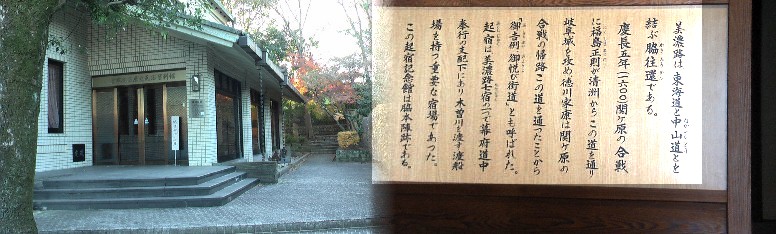 美濃路は、東海道と中山道とを
結ぶ脇往還である。
慶長五年(一六〇〇)関ケ原の合戦
に福島正則が清洲からこの道を通り
岐阜城を攻め徳川家康は関ケ原の
合戦の帰路この道を通つたことから
「御吉例御悦び街道」とも呼ばれた。
起宿は美濃路七宿の一つで幕府道中
奉行の支配下にあり木曽川を渡す渡船
場を持つ重要な宿場であつた。
この起宿記念館は脇本陣跡である。